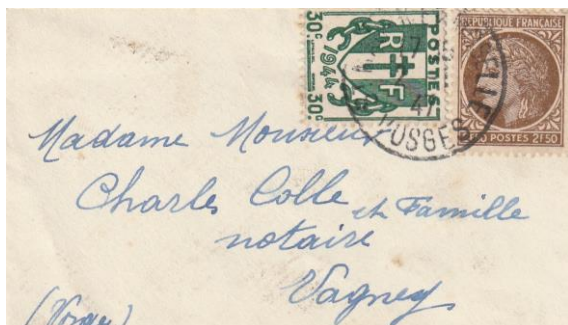 30c 1944 30c
RF
POSTES
REPUBLIQUE FRANÇAISE
POSTES 2F50
47
VOSGES
Madame Monsieur
Charles Colle et Famille
notaire
Vagney
(Vosges)